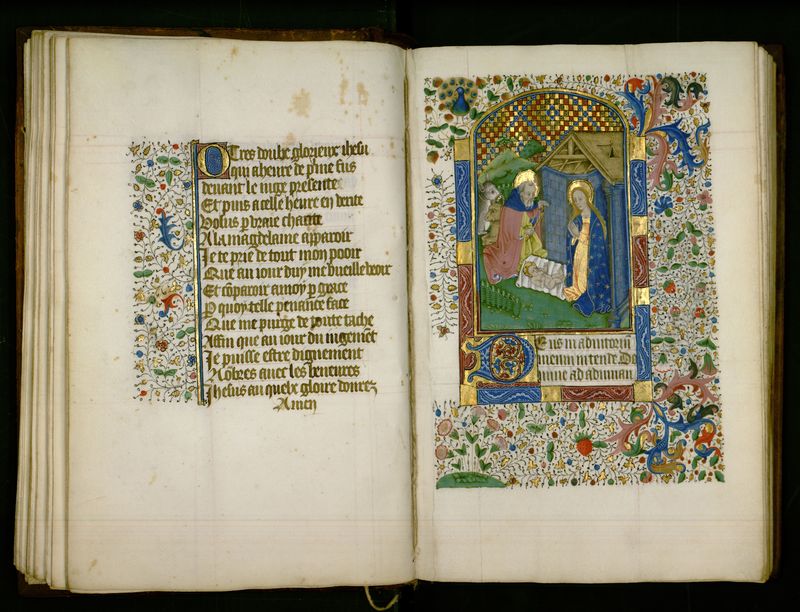 O Tres doulz glorieux ihesu
qui a heure de pme fus
deuant le iuge presente
Et puis a celle heure en verite
Volus p vraie charite
A la magdelaine apparoir
Je te prie de tout mon pooir
Que au iour duy me vueille veoir
Et cõparoir a moy p grace
P quoy telle penance face
Que me purge de toute tache
Affin que au iour du iugemēt
Je puisse estre dignement
Nõbres auec les beneures
Jhesus au quelz gloire donrez
Amen
Deus in adiutoriũ
meum intende. Do
mine ad adiuuan